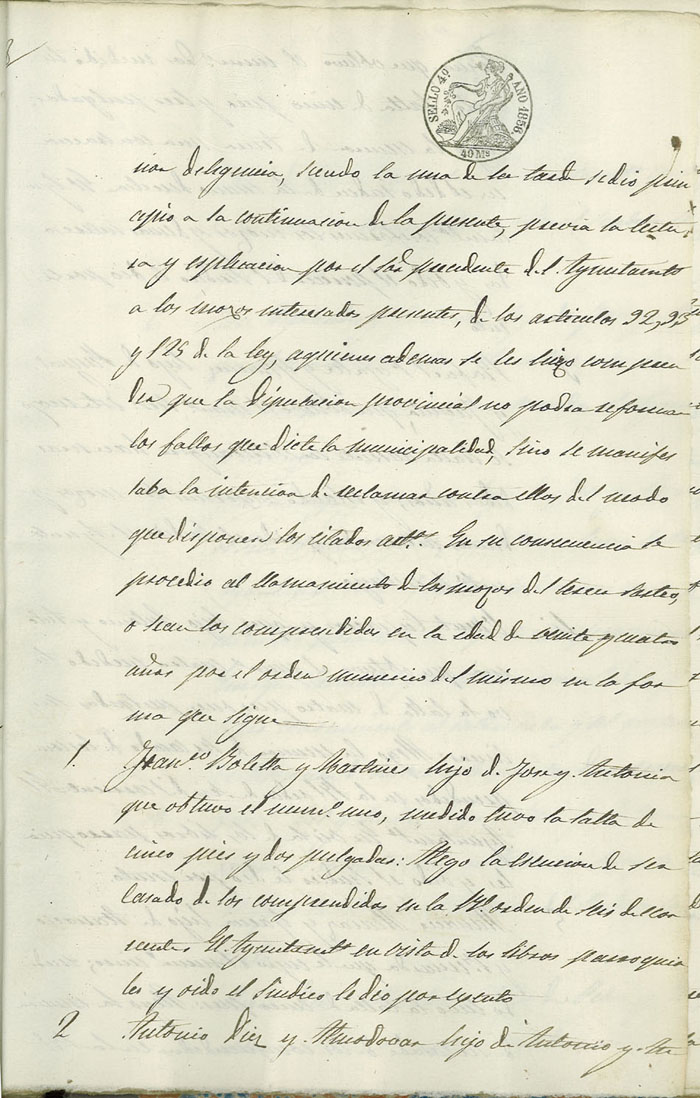 SELLO 4º AÑO 1856.
40 Ms
rior diligencia, siendo la una de la tarde se dio prin
cipio a la continuacion de la presente, previa la lectu
ra y esplicacion por el Sor presidente del Ayuntamto
a los mozos interesados presentes, de los articulos 92, 93
y 125 de la ley, a quienes ademas se les hizo compren
der que la Diputacion provincial no podra reformar
los fallos que dicte la municipalidad, sino se manifes
taba la intencion de reclamar contra ellos del modo
que disponen los citados arts. En su consecuencia se
procedio al llamamiento de los mozos del tercer sorteo,
o sean los comprendidos en la edad de veinte y cuatro
años por el orden numerico del mismo en la for
ma que sigue
1. Franco. Boletta y Martines hijo de Jose y Antonia
que obtuvo el numo. uno, medido tuvo la talla de
cinco pies y dos pulgadas: Alego la esencion de ser
casado de los comprendidos en la Rl. orden de seis del cor
riente. El Ayuntamto en vista de los libros parroquia
les y oido el Sindico le dio por esento
2 Antonio Diez y Almodovar hijo de Antonio y